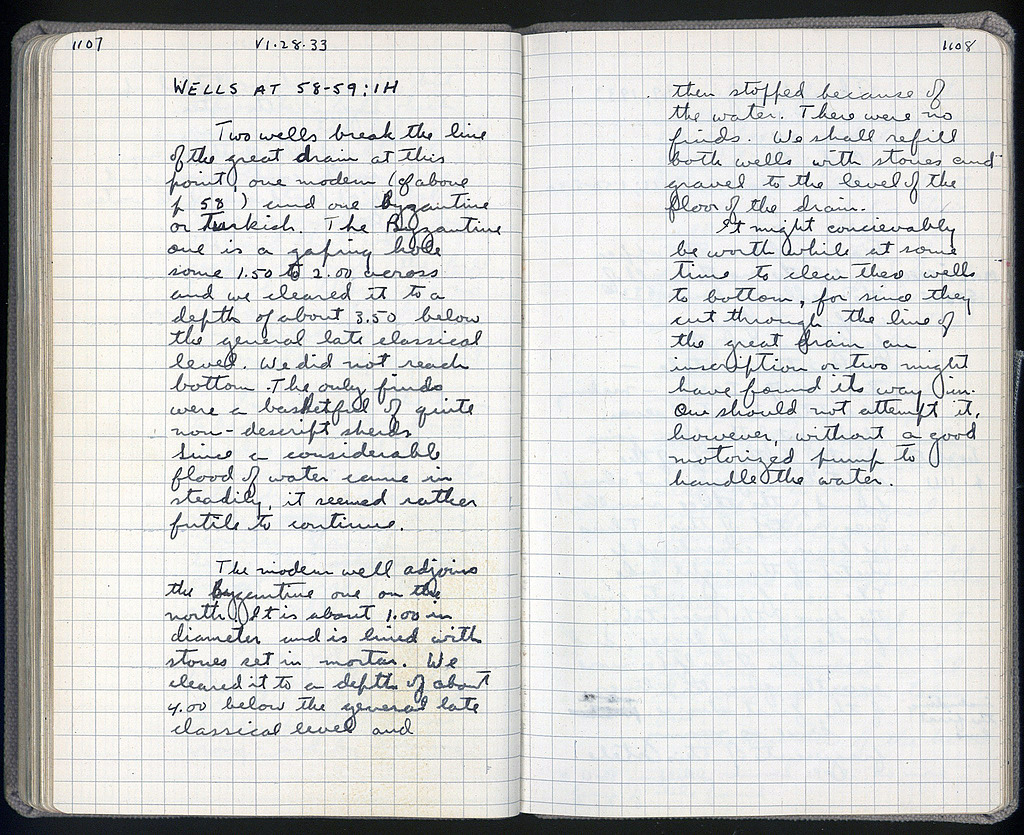 1107
VI.28.33
WELLS AT 58-59:IH
Two wells break the line
of the great drain at this
point, one modern (cf above
p 58 ) and one Byzantine
or Turkish. The Byzantine
one is a gaping hole
some 1.50 to 2.00 across
and we cleared it to a
depth of about 3.50 below
the general late classical
level. We did not reach
bottom. The only finds
were a basketful of quite
non-descript sherds
Since a considerable
flood of water came in
steadily, it seemed rather
futile to continue.
The modern well adjoins
the Byzantine one on the
north. It is about 1.00 in
diameter and is lined with
stones set in mortar. We
cleared it to a depth of about
4.00 below the general late
classical level and
1108
then stopped because of
the water. There were no
finds. We shall refill
both wells with stones and
gravel to the level of the
floor of the drain.
It might concievably
be worth while at some
time to clean these wells
to bottom, for since they
cut through the line of
the great drain an
inscription or two might
have found its way in.
One should not attempt it,
however, without a good
motorized pump to
handle the water.